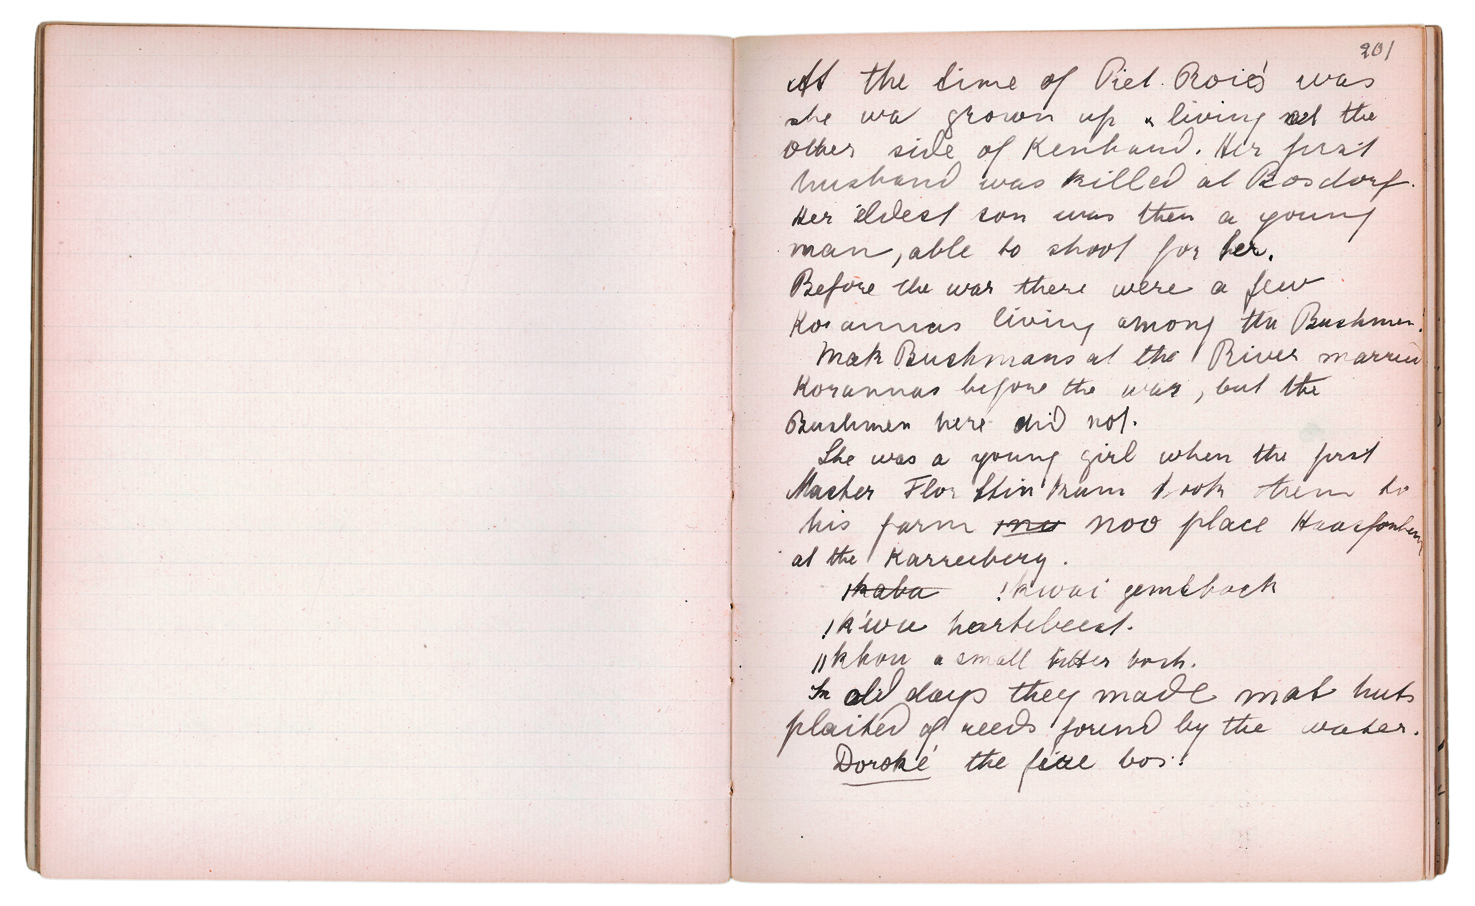 201
At the time of Piet Rooie's was
she wa grown up & living at the
other side of Kenhard. Her first
husband was killed at Bosdorf.
Her eldest son was then a young
man, able to shoot for her.
Before the war there were a few
Korannas living among the Bushmen.
Mak Bushmans at the River married
Korannas before the war, but the
Bushmen here did not.
She was a young girl when the first
Master Flor took them to
his farm noo place
at the Karreeberg.
!kwai gemsbock
!k'wu hartebeest.
ǁkhou a small bitter bosh.
In old days they made mat huts
plaited of reeds found by the water.
Doroké the fire box.